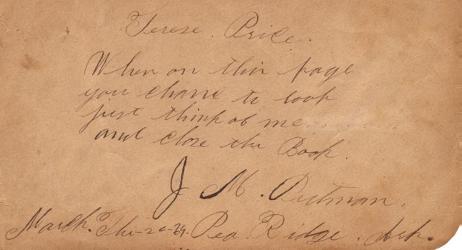 Terese Price.
When on this page
you chance to look
just think of me
and close the Book.
J M. Pitman.
March. The-26-79. Pea Ridge. Ark.